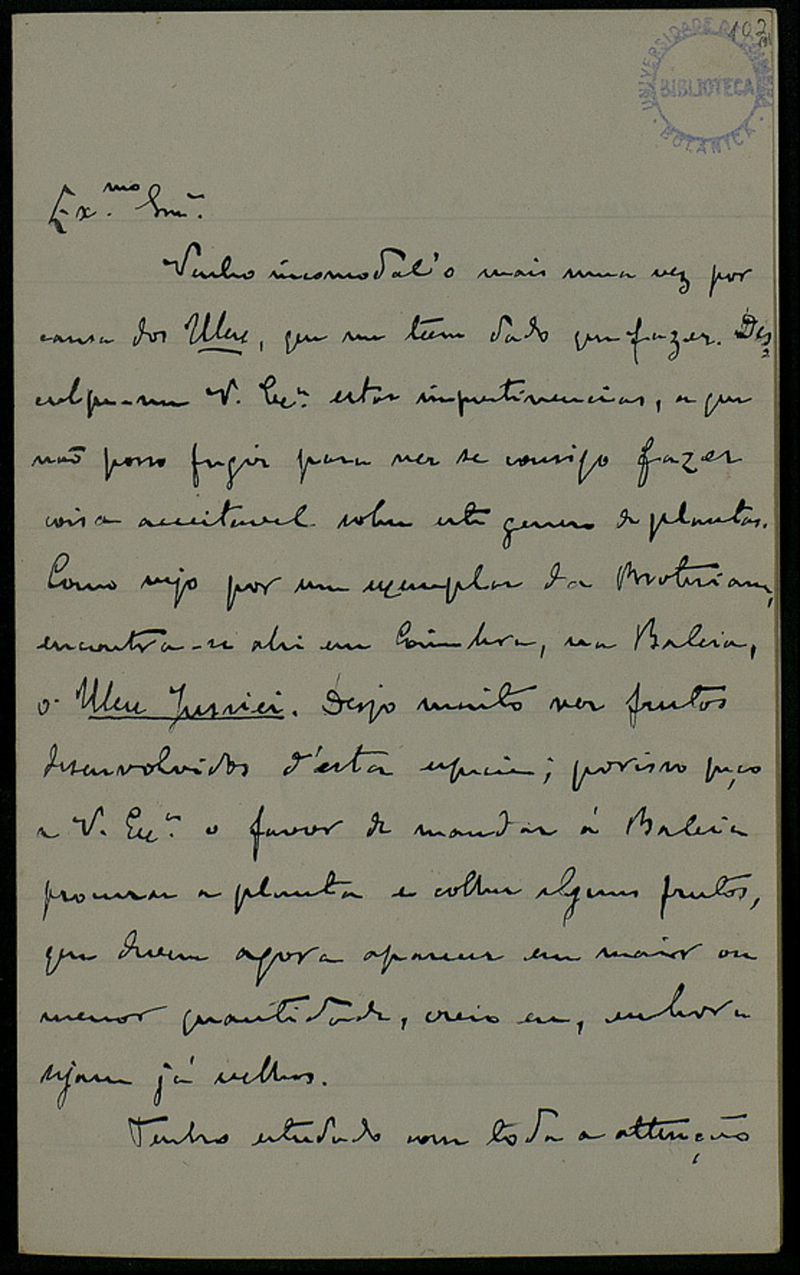 102
UNIVERSIDADE DE COIMBRA
BIBLIOTECA
BOTANICA
Ex.mo Snr.
Venho incomodal'o mais uma vez por
causa dos Ulex, que me teem dado que fazer. Des=
culpe-me V. Ex.a estas impertinencias, a que
não posso fugir para ver se consigo fazer
coisa acceitavel sobre este genero de plantas.
Como vejo por um exemplar da Broteriana,
encontra-se ahi em Coimbra, na Baleia,
o Ulex Jussiei. Desejo muito ver frutos
desenvolvidos d'esta especie; porisso peço
a V. Ex.a o favor de mandar á Baleia
procurar a planta e colher alguns frutos,
que devem agora aparecer em maior ou
menor quantidade, creio eu, embora
sejam já velhos.
Tenho estudado com toda a attenção